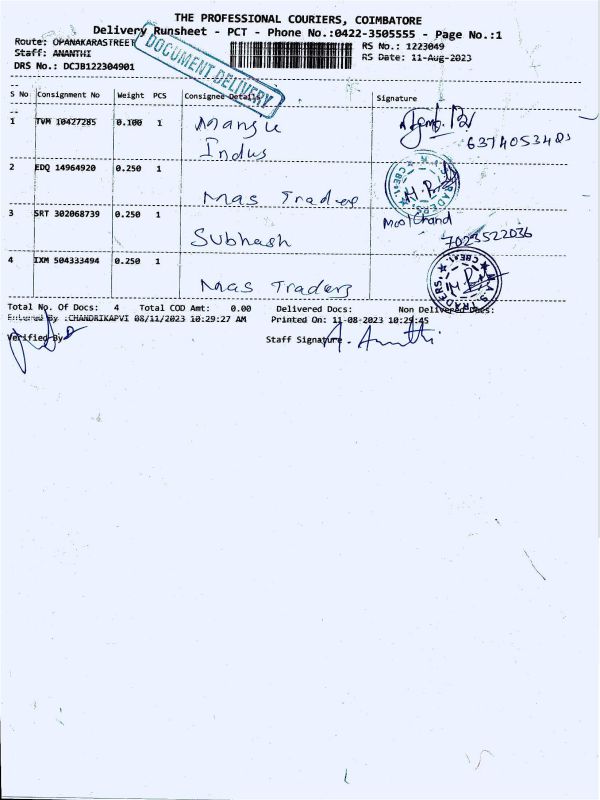 THE PROFESSIONAL COURIERS, COIMBATORE
Delivery Runsheet - PCT - Phone No.:0422-3505555 - Page No.:1
Route: OPANAKARASTREET RS No.: 1223049
Staff: ANANTHI RS Date: 11-Aug-2023
DRS No.: DCJB122304901
DOCUMENT DELIVERY
S No Consignment No Weight PCS Consignee Details Signature
1 TVM 10427285 0.100 1 Mangie
Indus
2 EDQ 14964920 0.250 1
Mas Traders
3 SRT 302068739 0.250 1 Moolchand
Subhash 7023522036
4 IXM 504333494 0.250 1
Mas Traders
Total No. Of Docs: 4 Total COD Amt: 0.00 Delivered Docs: Non Delivered Docs:
Entered By :CHANDRIKAPVI 08/11/2023 10:29:27 AM Printed On: 11-08-2023 10:29:45
Verified By Staff Signature A. Ananthi